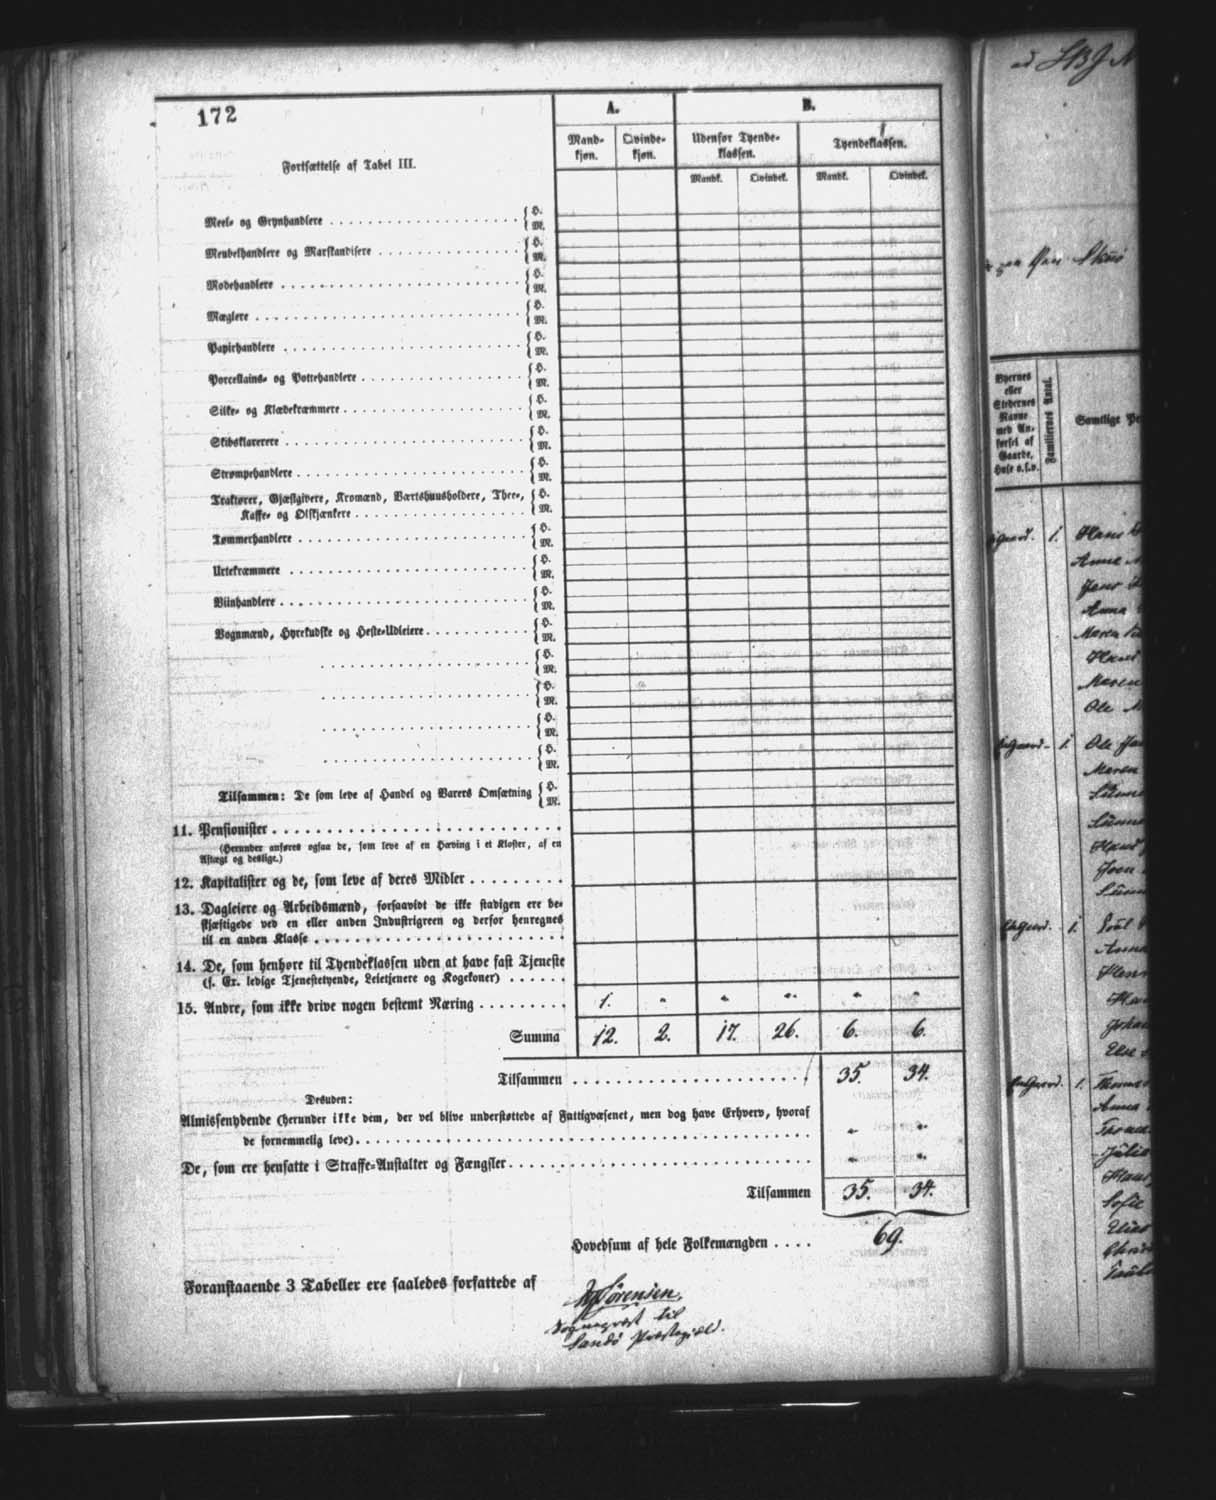 172
A.
B.
Fortsættelse af Tabel III.
Mand-
kjøn.
Qvinde-
kjøn.
Udenfor Tyende-
klassen.
Tyendeklassen.
Mandk.
Qvindek.
Mandk.
Qvindek.
Meel- og Grynhandlere
H.
M.
Meubelhandlere og Marskandisere
H.
M.
Modehandlere
H.
M.
Mæglere
H.
M.
Papirhandlere
H.
M.
Porcellains- og Pottehandlere
H.
M.
Silke- og Klædekræmmere
H.
M.
Skibsklarerere
H.
M.
Strømpehandlere
H.
M.
Traktører, Gjæstgivere, Kromænd, Værtshuusholdere, Thee-,
Kaffe- og Ølskjænkere
H.
M.
Tømmerhandlere
H.
M.
Urtekræmmere
H.
M.
Viinhandlere
H.
M.
Vognmænd, Hyrekudske og Heste-Udleiere
H.
M.
H.
M.
H.
M.
H.
M.
H.
M.
Tilsammen: De som leve af Handel og Varers Omsætning
H.
M.
11. Pensionister
(Herunder anføres ogsaa de, som leve af en Hæving i et Kloster, af en
Aftægt og deslige.)
12. Kapitalister og de, som leve af deres Midler
13. Dagleiere og Arbeidsmænd, forsaavidt de ikke stadigen ere be-
skjæftigede ved en eller anden Industrigreen og derfor henregnes
til en anden Klasse
14. De, som henhøre til Tyendeklassen uden at have fast Tjeneste
(s. Ex. ledige Tjenestetyende, Leietjenere og Kogekoner)
15. Andre, som ikke drive nogen bestemt Næring 1. " " " " "
Summa 12. 2. 17. 26. 6. 6.
Tilsammen 35. 34.
Desuden:
Almissenydende (herunder ikke dem, der vel blive understøttede af Fattigvæsenet, men dog have Erhverv, hvoraf
de fornemmelig leve) " "
De, som ere hensatte i Straffe-Anstalter og Fængsler " "
Tilsammen 35. 34.
Hovedsum af hele Folkemængden 69.
Foranstaaende 3 Tabeller ere saaledes forfattede af
Sørensen,
Sognepræst til
Sandø Præstegield.
Byernes
eller
Stedernes
Navne
med An-
førsel af
Gaarde,
Huse o.s.v.
Familiernes Antal.
Samtlige Pe
1. Hans
Anne
Jens
Anna
Maren
Hans
Maren
Ole
1. Ole
Maren
Hans
1.
Anna
1.
Anna
Julie
Hans
Sofie